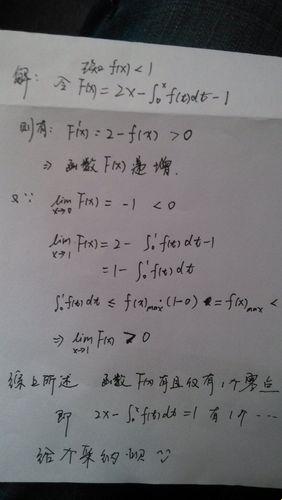 现知 f(x)<1
解: 令 F(x)=2x-∫₀ˣf(t)dt-1
则有: F'(x)=2-f(x)>0
⇒ 函数F(x)递增.
又∵ lim x→0 F(x)=-1<0
lim x→1 F(x)=2-∫₀¹f(t)dt-1
=1-∫₀¹f(t)dt
∫₀¹f(t)dt≤f(x)max·(1-0)=f(x)max<
⇒ lim x→1 F(x)>0
综上所述 函数F(x)有且仅有1个零点
即 2x-∫₀ˣf(t)dt=1 有1个…
给个采纳呗